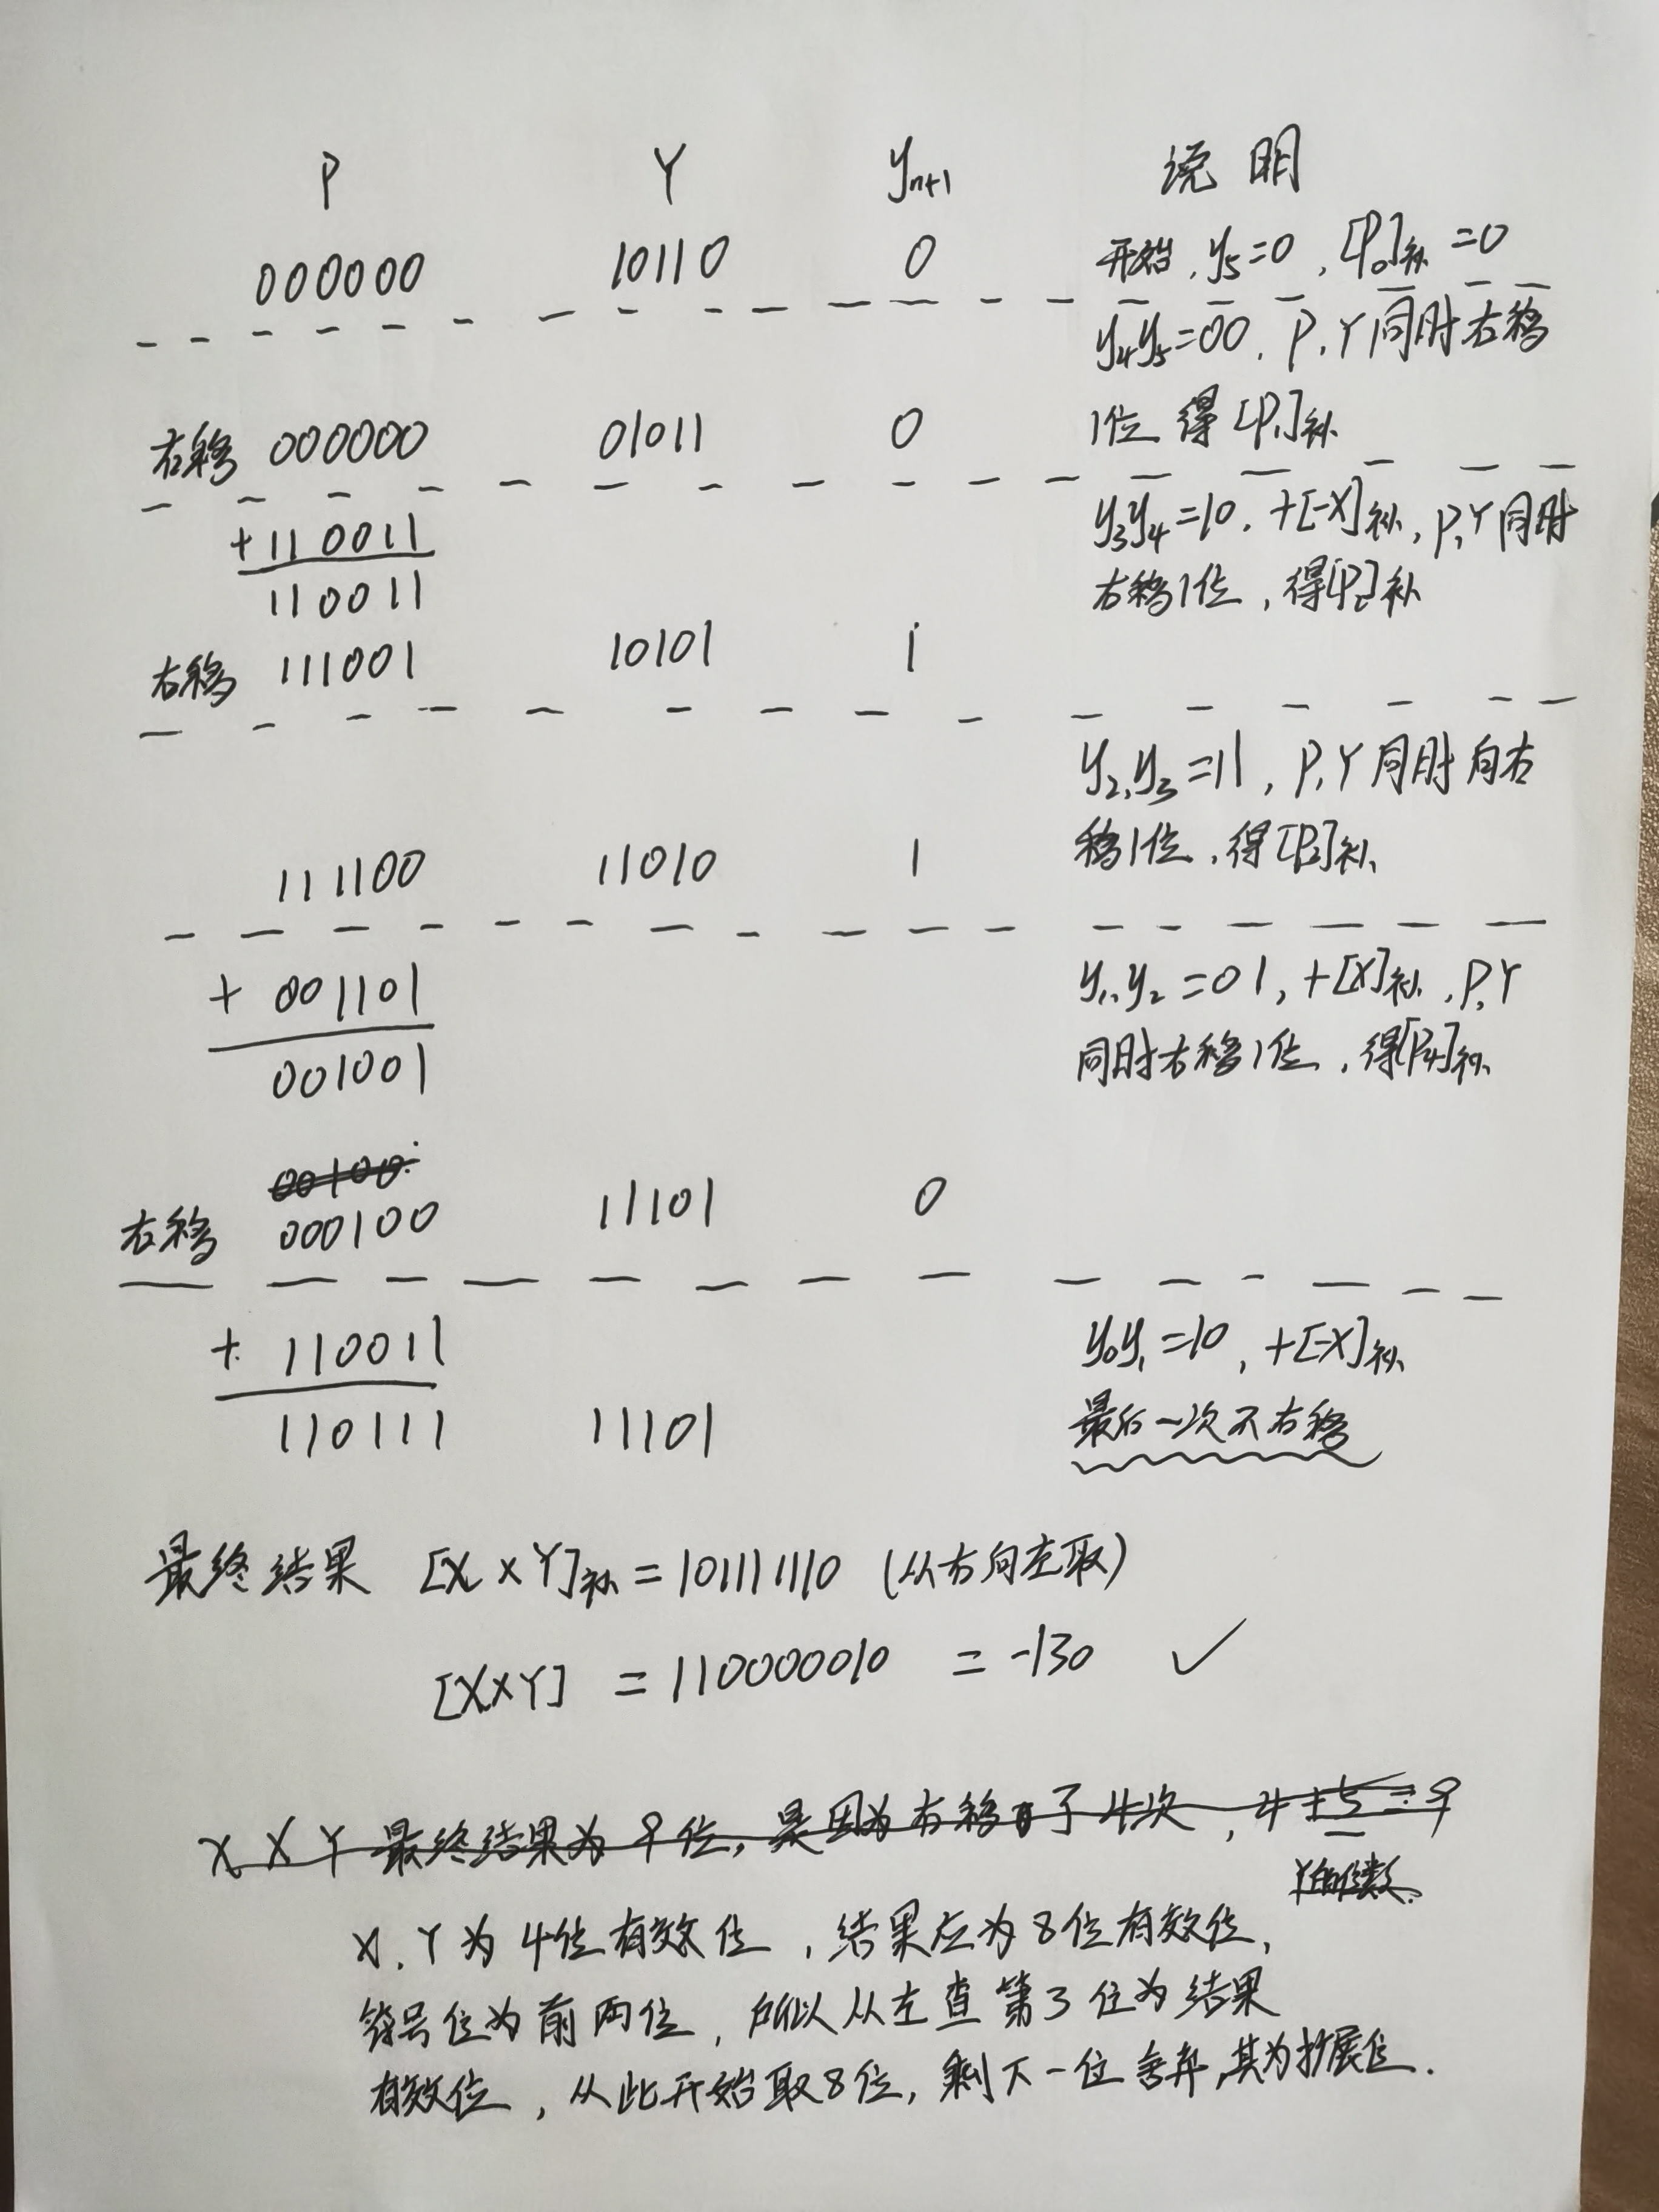 P Y yn+1 说明
000000 10110 0 开始，y5=0，[P0]补=0
y4y5=00，P，Y同时右移
右移 000000 01011 0 1位 得[P1]补
+110011 y3y4=10，+[-X]补，P，Y同时
110011 右移1位，得[P2]补
右移 111001 10101 1
y2,y3=11，P，Y同时向右
111100 11010 1 移1位，得[P3]补
+ 001101 y1,y2=01，+[X]补，P，Y
001001 同时右移1位，得[P4]补
00100
右移 000100 11101 0
+ 110011 y0y1=10，+[-X]补
110111 11101 最后一次不右移
最终结果 [X×Y]补=101111110（从右向左取）
[X×Y] =110000010 =-130 ✓
X×Y最终结果为9位，是因为右移了4次，4+5=9
Y的位数
X，Y为4位有效位，结果应为8位有效位，
符号位为前两位，所以从左查第3位为结果
有效位，从此开始取8位，剩下一位舍弃，其为扩展位.